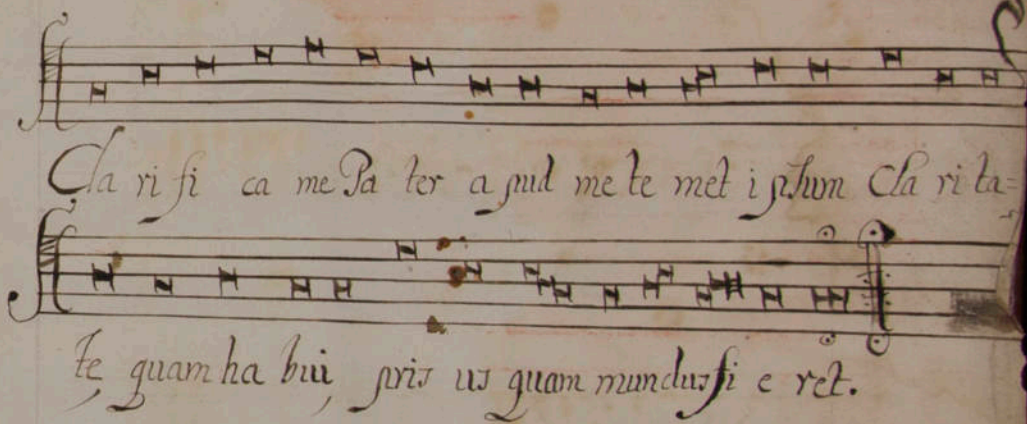 Cla ri fi ca me Pa ter a pud me te met i psum Cla ri ta=
te quam ha bui, pris us quam mundus fi e ret.